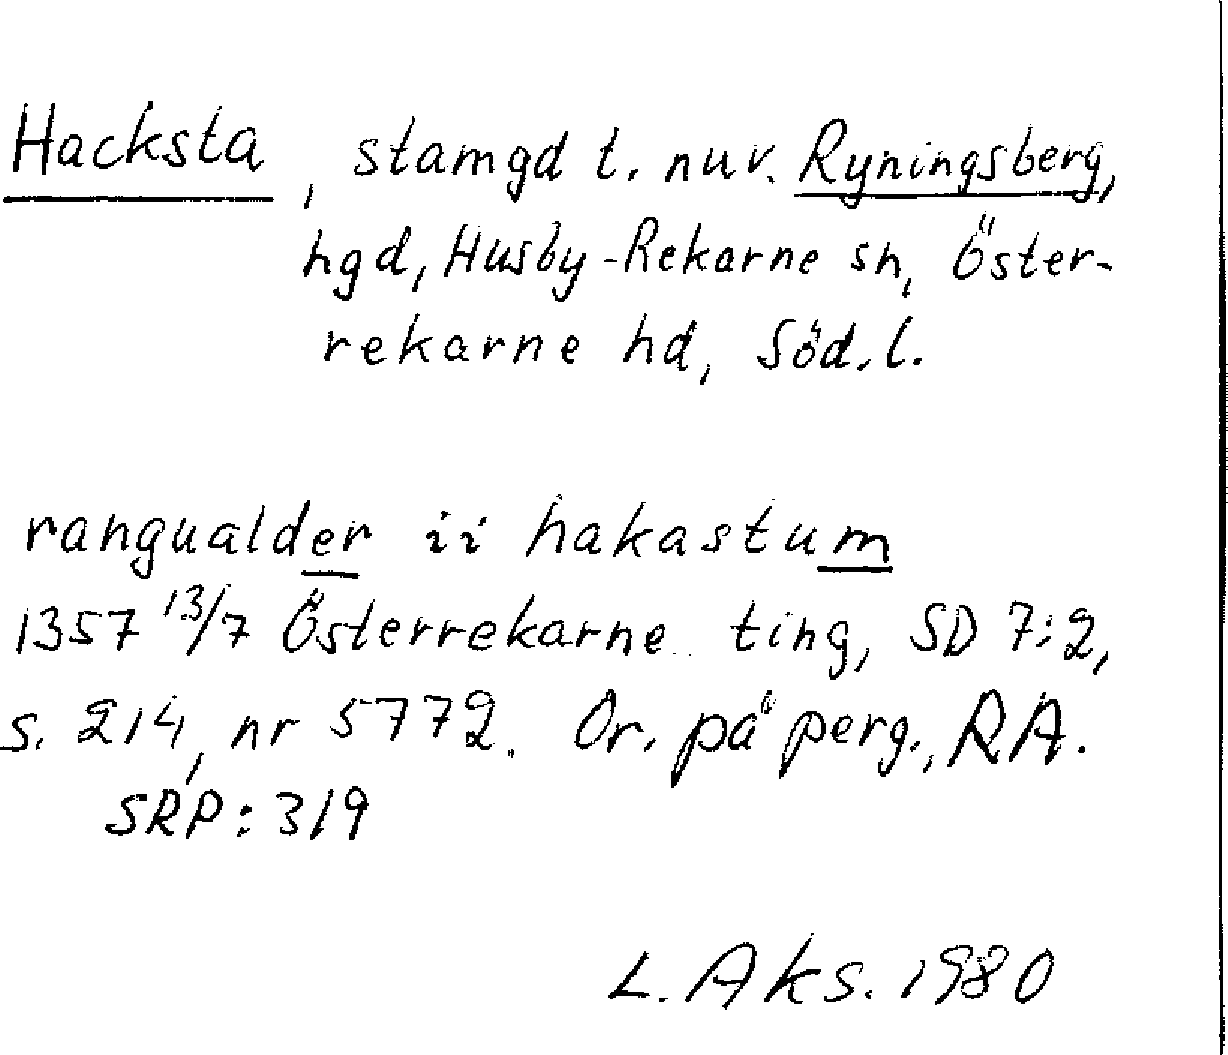 Hacksta, stamgd t. nuv. Ryningsberg,
hgd, Husby-Rekarne sn, Öster-
rekarne hd, Söd.l.
rangualder ii hakastum
1357 13/7 Österrekarne ting, SD 7:2,
s. 214, nr 5772. Or. på perg., RA.
SRP: 319
L. Aks. 1980